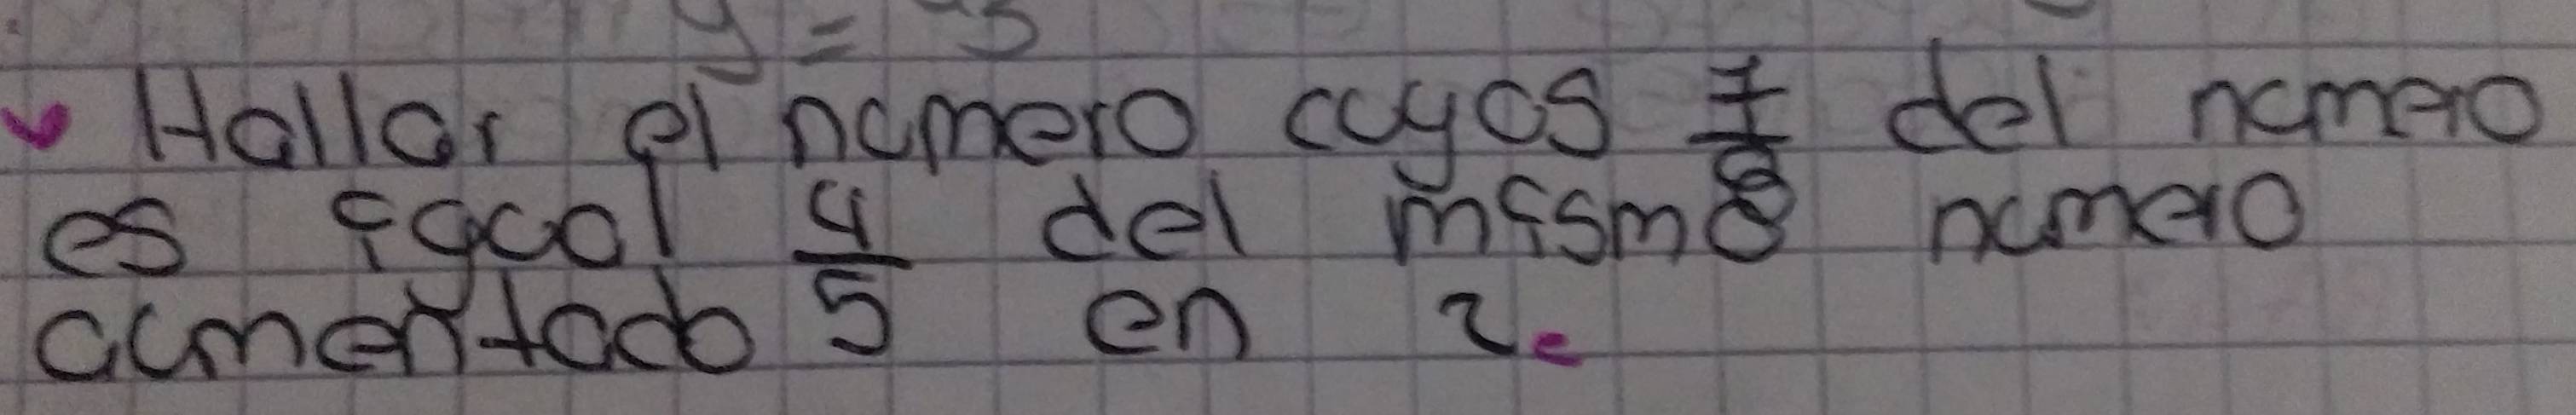 y = 3
Hallar el numero cuyos 7/8 del numero
es igual 4/5 del mismo numero
aumentado en 2.